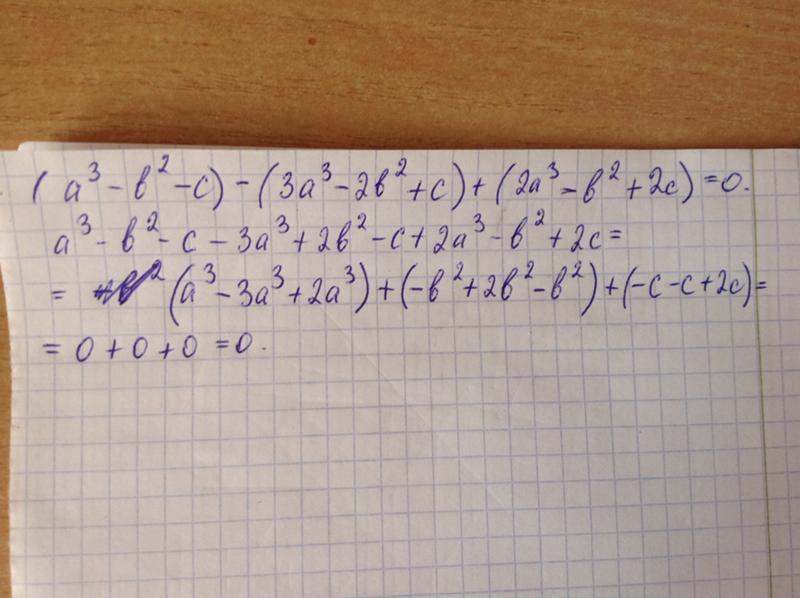 (a³ - в² - c) - (3a³ - 2в² + c) + (2a³ - в² + 2c) = 0.
a³ - в² - c - 3a³ + 2в² - c + 2a³ - в² + 2c =
= (a³ - 3a³ + 2a³) + (-в² + 2в² - в²) + (-c - c + 2c) =
= 0 + 0 + 0 = 0.